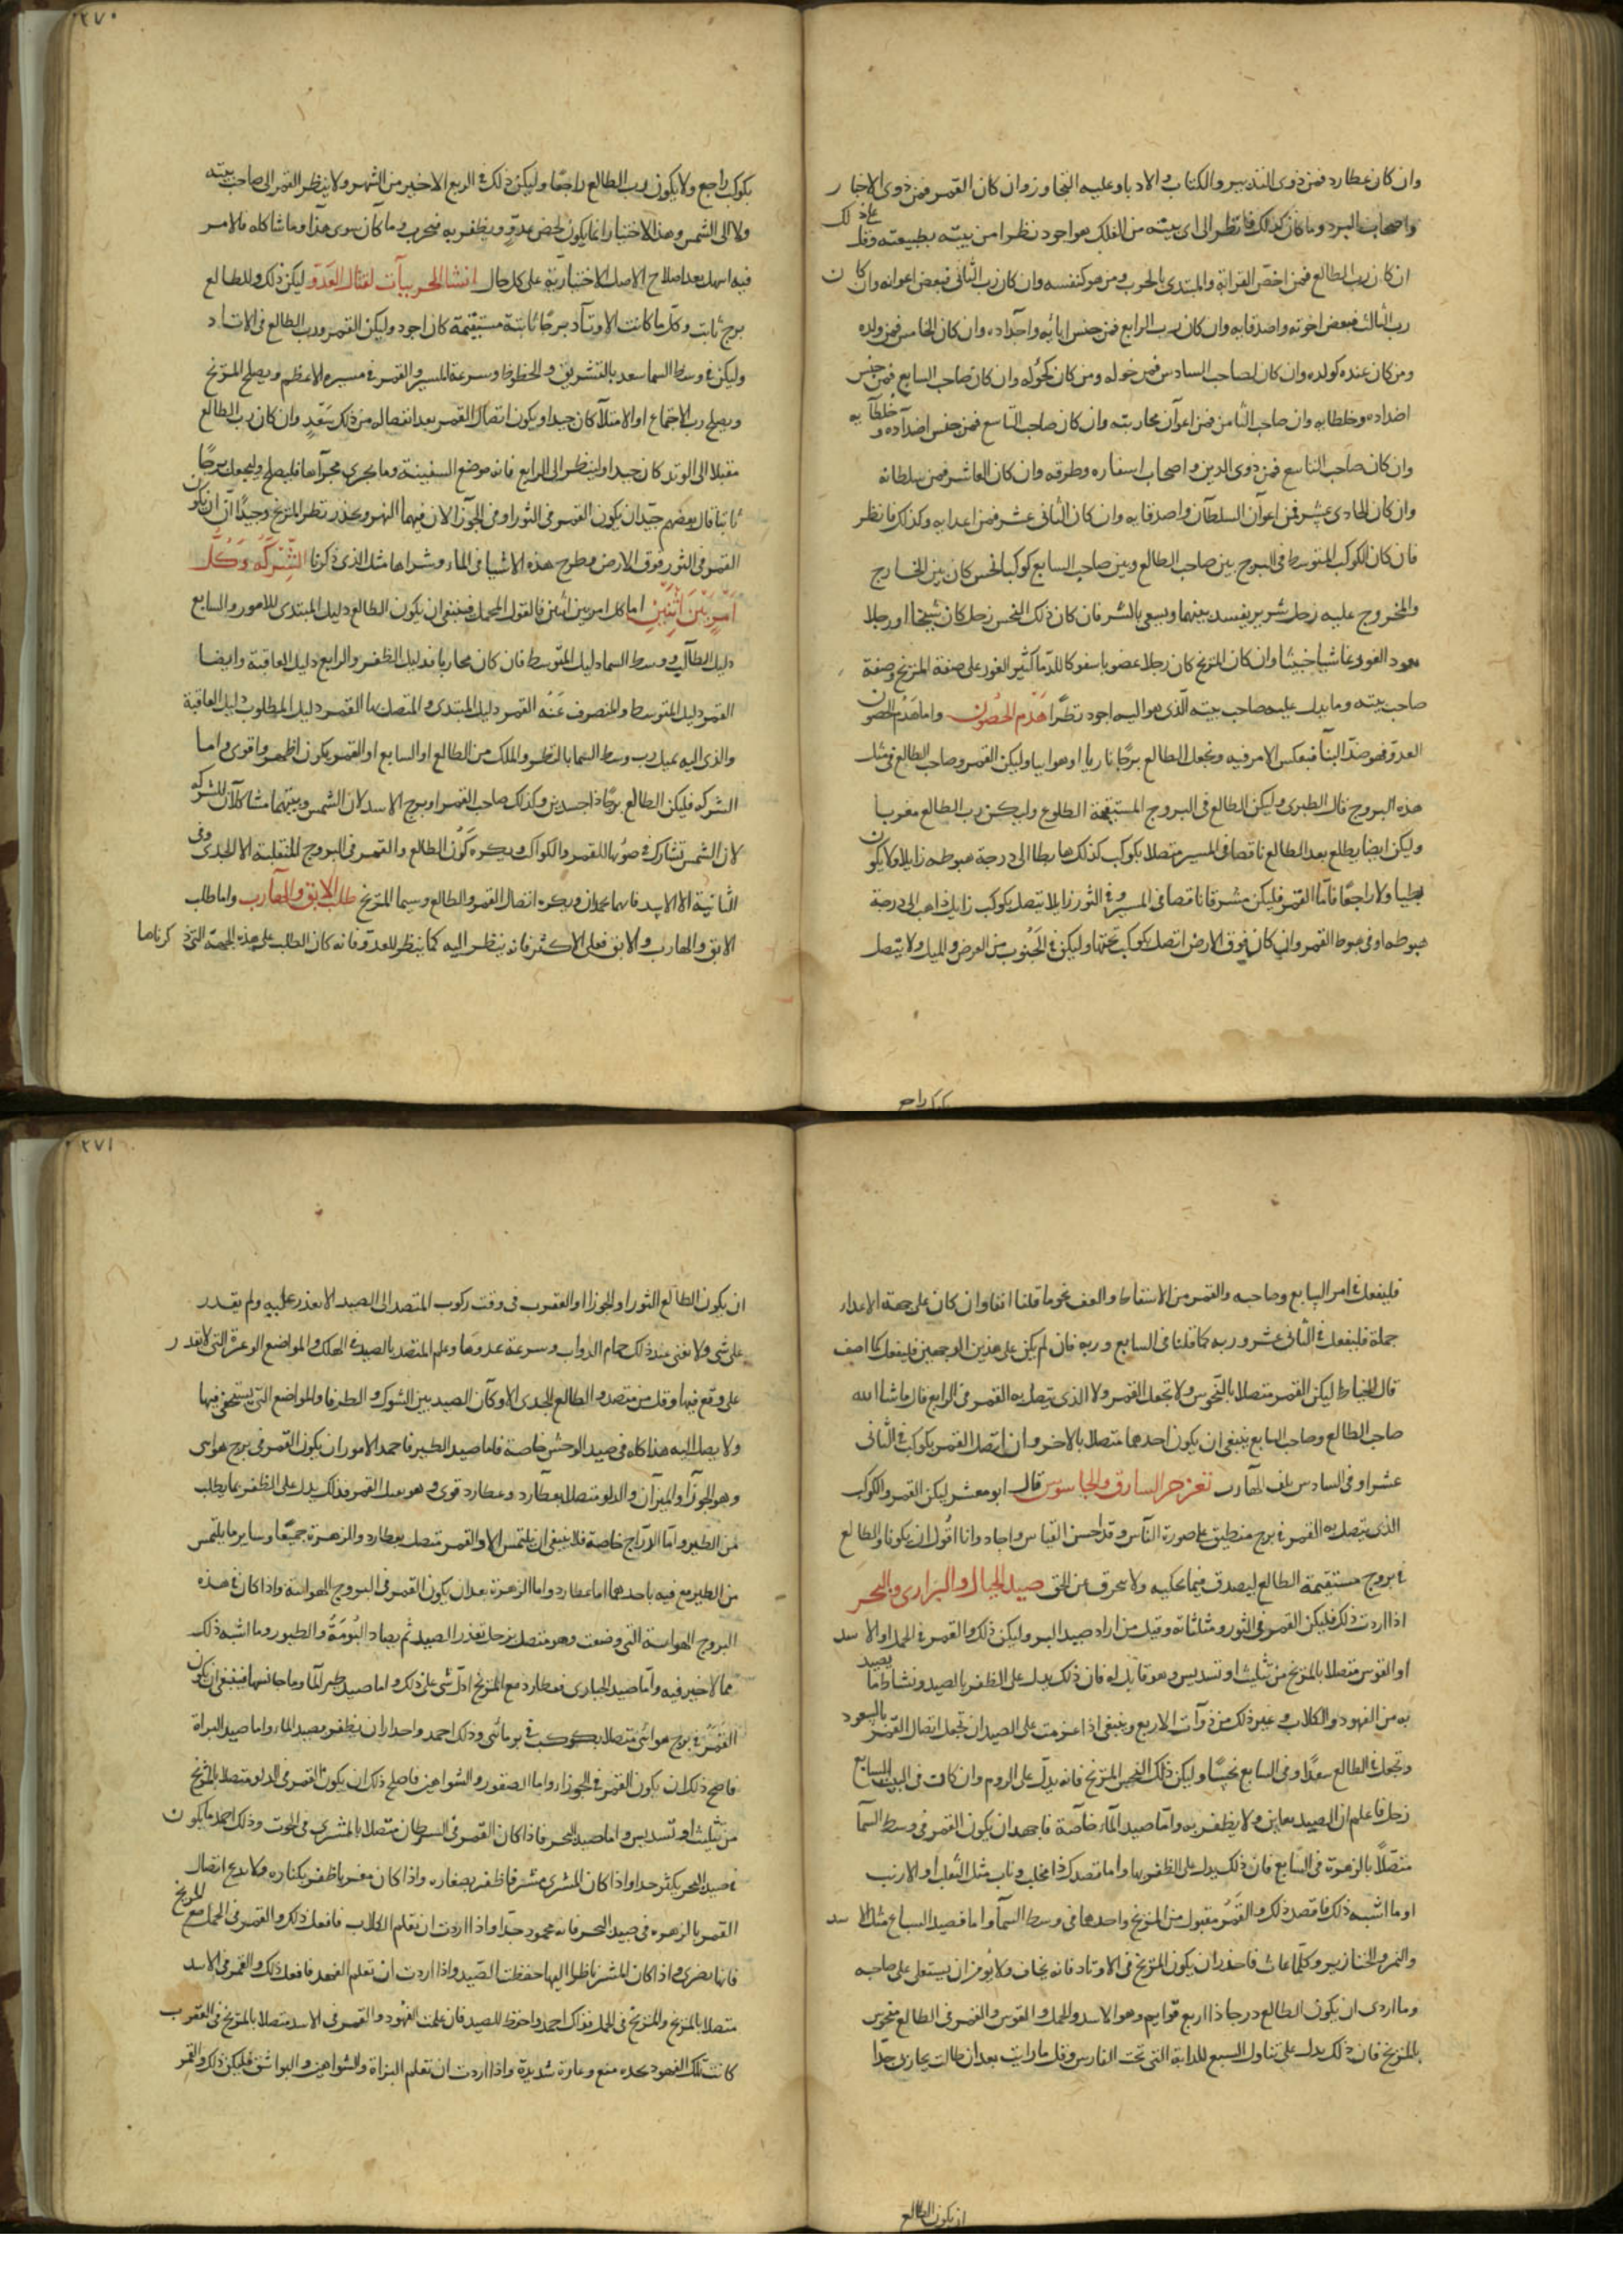 ٢٧٠
وان كان عطارد فمن ذوى التدبير والكتاب والادباء وعليه التجاوز وان كان القمر فمن ذوى الاخبار
واصحاب البرد وما كان كذلك فانظر الى اى بيته من الفلك هو اجود نظرا من بيته بطبيعته وقل على ذلك
ان كان رب الطالع فمن اخص القرابة والمبتدى بالحرب ومن هو كنفسه وان كان رب الثانى فبعض اعوانه وان كان
رب الثالث فبعض اخوته واصدقايه وان كان رب الرابع فمن جنس ابائه واجداده وان كان الخامس فمن ولده
ومن كان عنده كولده وان كان لصاحب السادس فمن خوله ومن كان كخوله وان كان صاحب السابع فمن جنس
اضداده وخلطايه وان صاحب الثامن فمن اعوان محاربته وان كان صاحب التاسع فمن جنس اضداده وخلطآيه
وان كان صاحب التاسع فمن ذوى الدين واصحاب اسفاره وطرقه وان كان العاشر فمن سلطانه
وان كان الحادى عشر فمن اعوان السلطان واصدقايه وان كان الثانى عشر فمن اعدايه وكذلك فانظر
فان كان الكوكب المتوسط فى البروج بين صاحب الطالع وبين صاحب السابع كوكبا نحس كان بين الخارج
والمخروج عليه رجل شرير يفسد بينهما ويسعى بالشر فان كان ذلك النحس زحل كان شيخا او رجلا
بعيد الغور غاشيا خبيثا وان كان المريخ كان رجلا غضوبا سفوكا للدما كثير الغور على صفة المريخ وصفة
صاحب بيته وما يدل عليه صاحب بيته الذى هو اليه اجود نظرا هَدْم الحُصون واما هَدْم الحصون
العدو فهو ضد البنآ فبعكس الامر فيه وتجعل الطالع برجا ناريا او هواييا وليكن القمر وصاحب الطالع فى مثل
هذه البروج قال الطبرى وليكن الطالع فى البروج المستقيمة الطلوع وليكن رب الطالع مغربا
وليكن ايضا يطلع بعد الطالع ناقصا فى المسير متصلا بكوكب كذلك هابطا الى درجة هبوطه زايلا ولا يكون
بطيا ولا راجعا فاما القمر فليكن مشرقا ناقصا فى المسير وفى الثور زايلا يتصل بكوكب زايل ذاهب الى درجة
هبوطه او فى هبوط القمر وان كان فوق الارض اتصل بكوكب تحتها وليكن فى الجنوب من العرض والميل ولا يتصل
بكوكب راجع
بكوكب راجع ولا يكون رب الطالع راجعا وليكن ذلك فى الربع الاخير من الشهر ولا ينظر القمر الى صاحب بيته
ولا الى الشمس وهذا الاختيار انما يكون لحصن عدو ويظفر به فيخرب وما كان سوى هذا وما شاكله فالامر
فيه اسهل بعد اصلاح الاصل الاختيارية على كل حال انشا الحربيات لقتال العدو ليكن ذلك والطالع
برج ثابت وكل ما كانت الاوتاد برجا ثابتة مستقيمة كان اجود وليكن القمر ورب الطالع فى الاوتاد
وليكن فى وسط السما سعد بالتشريق والحظوظ وسرعة المسير والقمر فى مسيره الاعظم ويصلح المريخ
ويصلح رب الاجتماع او الامتلآ كان جيدا ويكون اتصال القمر بعد انفصاله من ذلك بسعد وان كان رب الطالع
مقبلا الى الوتد كان جيدا ولينظر الى الرابع فانه موضع السفينة وما يجرى مجراها فليصلح وليجعل برجًا
ثابتا قال بعضهم جيد ان يكون القمر فى الثور او فى الجوزا لان فيهما النهر ويحذر نظر المريخ وجيدًا ان يكون
القمر فى الثور فوق الارض ومطرح هذه الاشيا فى الماء وشراها مثل الذى ذكرنا الشِّرْكَة وَكُلّ
اَمْرٍ بَيْنَ اثْنَيْن اما كل امر بين اثنين فالقول المجمل فينبغى ان يكون الطالع دليل المبتدى للامور والسابع
دليل الطالب ووسط السما دليل المتوسط فان كان محاربا فدليل الظفر والرابع دليل العاقبة وايضا
القمر دليل المتوسط والمنصرف عَنْهُ القمر دليل المبتدى والمتصل بها القمر دليل المطلوب دليل العاقبة
والذى اليه يميل رب وسط السما بالنظر والملك من الطالع او السابع او القمر يكون اظهر واقوى واما
الشركه فليكن الطالع برجا ذا جسدين وكذلك صاحب القمر او برج الاسد لان الشمس وبيتهما مشاكلان للشركه
لان الشمس تشارك فى ضوئها للقمر والكواكب ويكره كون الطالع والقمر فى البروج المنقلبة الا الجدى وفى
الثانية الا الاسد فانهما يحمدان ويكره اتصال القمر والطالع وسيما المريخ طلب الابق والهارب واما طلب
الابق والهارب والابق فعلى الاكثر فانه ينظر اليه كما ينظر للعدو فانه كان الطلب على هذه الجهة التى ذكرناها
٢٧١
فليفعل فى امر السابع وصاحبه والقمر من الاسقاط والعف نحو ما قلنا انفا وان كان على جهة الاعداء
جملة فليفعل فى الثانى عشر وربه كما قلنا فى السابع وربه فان لم يكن على هذين الوجهين فليفعل كما اصف
قال الخياط ليكن القمر متصلا بالنحوس ولا تجعل القمر ولا الذى يتصل به القمر فى الرابع قال ما شا الله
صاحب الطالع وصاحب السابع ينبغى ان يكون احدهما متصلا بالاخر وان اتصل القمر بكوكب فى الثانى
عشر او فى السادس تلف الهارب تعزير السارق والجاسوس قال ابو معشر ليكن القمر والكوكب
الذى يتصل به القمر فى برج منطبق على صورة الناس وقد احسن القياس واجاد وانا اقول ان يكونا والطالع
فى بروج مستقيمة الطالع ليصدق فيما يحكيه ولا يحرف عن الحق صيد الجبال والبرارى والبحر
اذا اردت ذلك فليكن القمر فى الثور ومثلثاته وقيل من اراد صيد البر وليكن ذلك والقمر فى الحمل او الاسد
او القوس متصلا بالمريخ من تثليث او تسديس وهو قابل له فان ذلك يدل على الظفر بالصيد ونشاط ما يصيد
به من الفهود والكلاب وغير ذلك من ذوات الاربع وينبغى اذا عزمت على الصيد ان تجعل اتصال القمر بالسعود
وتجعل فى الطالع سعدًا وفى السابع نحسًا وليكن ذلك النحس المريخ فانه يدل على الروم وان كانت فى البيت السابع
زحل فاعلم ان الصيد يعاين ولا يظفر به واما صيد الماء خاصة فاجهد ان يكون القمر فى وسط السمآ
متصلًا بالزهرة فى السابع فان ذلك يدل على الظفر بها واما قصدك ذا مخلب وناب مثل الثعلب او الارنب
او ما اشبه ذلك فاقصد ذلك والقمر مقبول من المريخ واحدها فى وسط السمآ واما قصيد السباع مثل الاسد
والنمر والخنازير وكلما عاث فاحذر ان يكون المريخ فى الاوتاد فانه يخاف ولا يومن ان يستعلى على صاحبه
وما اردى ان يكون الطالع درجا ذا اربع قوايم وهو الاسد والحمل والقوس والقمر فى الطالع منحوس
بالمريخ فان ذلك يدل على تناول السبع للدابة التى تحت الفارس وقل ما رايت بعد ان طالت تجاربى جدّا
ان يكون الطالع
ان يكون الطالع الثور او الجوزا او العقرب فى وقت ركوب المتصد الى الصيد الا تعذر عليه ولم يقدر
على شى ولا تغنى عند ذلك حمام الدواب وسرعة عدوها وعلم المتصد بالصيد فى الهلك والمواضع الوعرة التى لا يقدر
على وقع فيها وقل من متصد والطالع الجدى الا وكان الصيد بين الشوك والطرفا والمواضع التى يستخفى فيها
ولا يصل اليه هذا كله فى صيد الوحش خاصة فاما صيد الطير فاحمد الامور ان يكون القمر فى برج هوائى
وهو الجوزا والميزان والدلو متصلا بعطارد وعطارد قوى وهو يقبل القمر فذلك يدل على الظفر بما يطلب
من الطير واما الدراج خاصة فلا ينبغى ان يلتمس الا والقمر متصل بعطارد والزهرة جميعًا وساير ما يلتمس
من الطير مع فيه باحدهما اما عطارد واما الزهرة بعد ان يكون القمر فى البروج الهوائية واذا كان فى هذه
البروج الهوائية التى وضعت وهو متصل بزحل تعذر الصيد ثم يصاد البُومَةُ والطيور وما اشبه ذلك
مما لا خير فيه واما صيد الحبارى فعطارد مع المريخ ادل شى على ذلك واما صيد طير المآ وما جانسها فينبغى ان يكون
القَمَرُ فى برج هوائى متصلا بكوكب فى برج مائى وذلك احمد واحدار ان يظفر بصيد الماء واما صيد البزاة
فاصح ذلك ان يكون القمر فى الجوزاء واما الصقور والشواهين فاصلح ذلك ان يكون القمر فى الدلو متصلا بالمريخ
من تثليث او تسديس واما صيد البحر فاذا كان القمر فى السرطان متصلا بالمشترى فى الحوت وذلك احمد ما يكون
فى صيد البحر يكثر جدا واذا كان المشترى مشرقا ظفر بصغاره واذا كان مغربا ظفر بكباره ولا يدع اتصال
القمر بالزهرة فى صيد البحر فانه محمود جدًا واذا اردت ان تعلم الكلاب فافعل ذلك والقمر فى الحمل مع المريخ
فانها تضرى واذا كان المشترى ناظرا اليها حفظت الصيد واذا اردت ان تعلم الفهد فافعل ذلك والقمر فى الاسد
متصلا بالمريخ والمريخ فى الحمل فذلك احمد واحفظ للصيد فان علمت الفهود والقمر فى الاسد متصلا بالمريخ فى العقرب
كانت تلك الفهود بحده منع وعارة شديدة واذا اردت ان تعلم البزاة والشواهين والبواشق فليكن ذلك والقمر